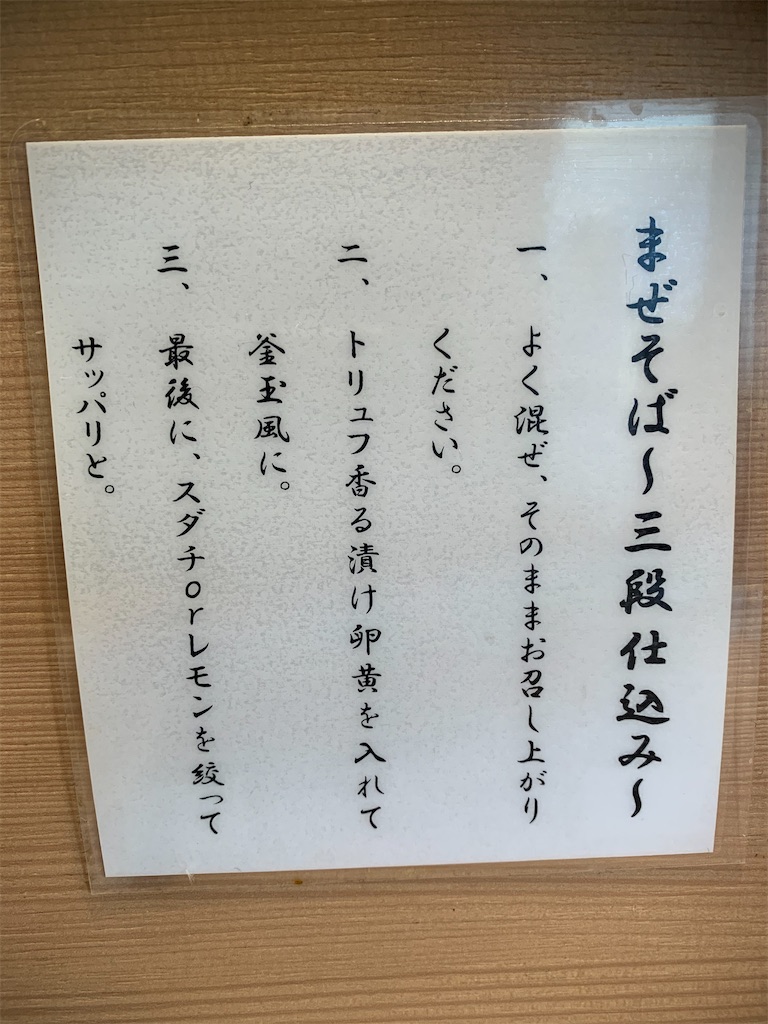 まぜそば〜三段仕込み〜
一、よく混ぜ、そのままお召し上がり
ください。
二、トリュフ香る漬け卵黄を入れて
釜玉風に。
三、最後に、スダチorレモンを絞って
サッパリと。